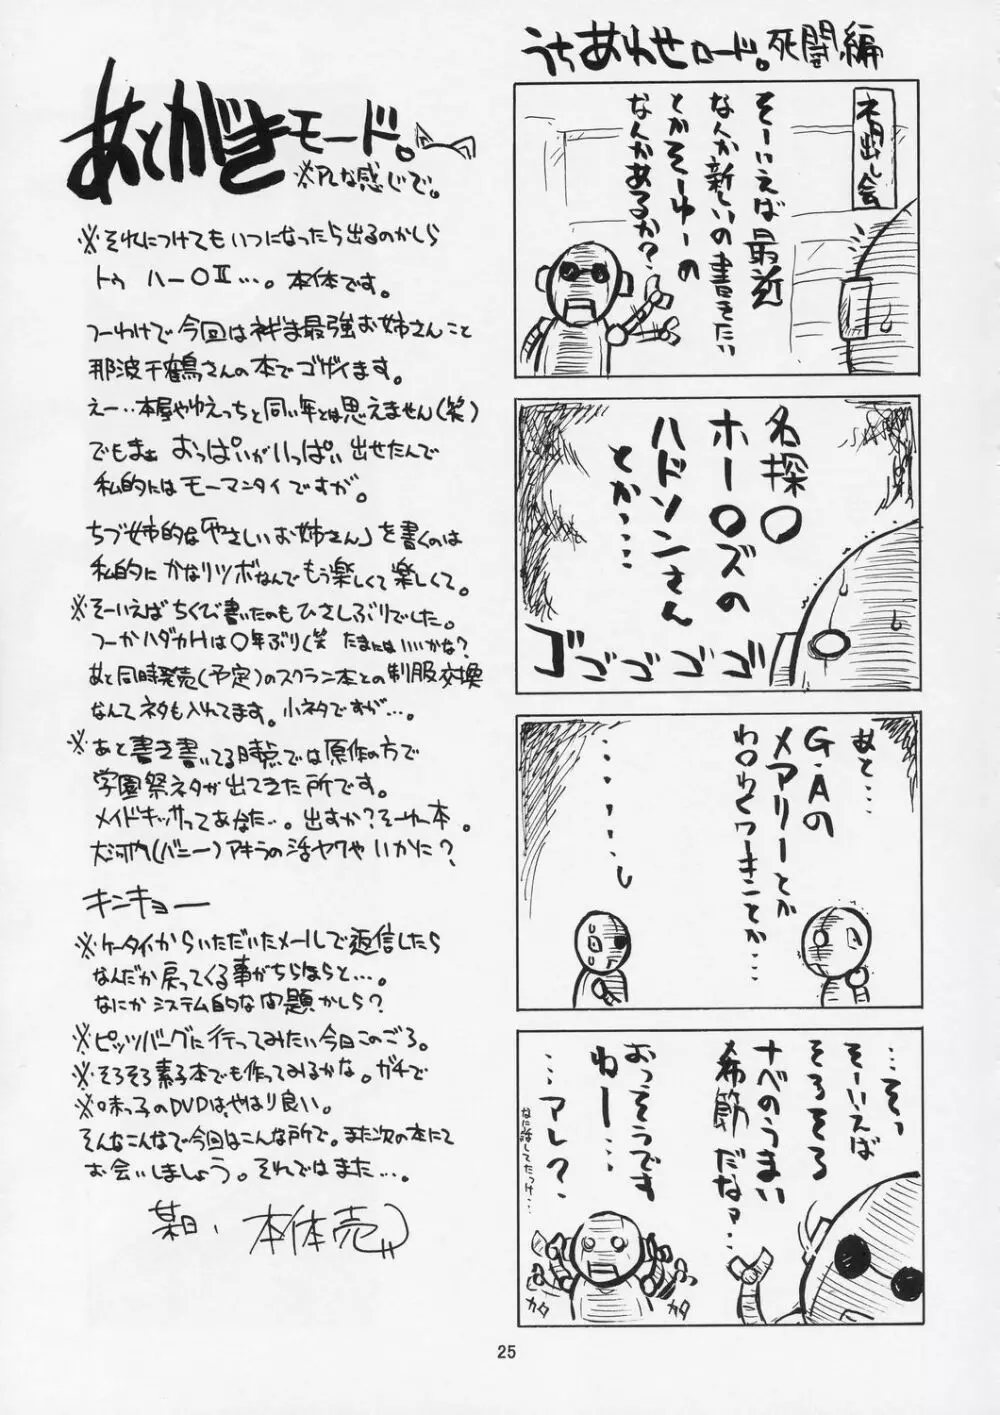 うちあわせロード。死闘編
ネタ出し会
そーいえば最近
なんか新しいの書きたい
とかそーゆーの
なんかあるか?
名探〇
ホー〇ズの
ハドソンさん
とか…
ゴゴゴゴゴ
あと…
G・Aの
メアリーとか
わ〇わくワーキンとか…
………し
…そっ
そーいえば
そろそろ
ナベのうまい
季節だなァ…
おっそうです
ねー…
…アレ?
なに話してたっけ…
カタ
カタ
あとがきモード。
※アレな感じで。
※それにつけてもいつになったら出るのかしら
トゥ ハー〇Ⅱ…。本体です。
つーわけで今回はネギま最強お姉さんこと
那波千鶴さんの本でゴザイます。
えー…本屋やゆえっちと同い年とは思えません(笑)
でもまぁ おっぱいがいっぱい出せたんで
私的にはモーマンタイですが。
ちづ姉的な「やさしいお姉さん」を書くのは
私的にかなりツボなんでもう楽しくて楽しくて。
※そーいえばちくび書いたのもひさしぶりでした。
つーかハダカHは〇年ぶり(笑 たまにはいいかな?
あと同時発売(予定)のスクラン本との制服交換
なんてネタも入れてます。小ネタですが…。
※あと書き書いてる時点では原作の方で
学園祭ネタが出てきた所です。
メイドキッサってあなた…。出すか?そーゆー本。
大河内(バニー)アキラの活ヤクやいかに?
キンキョー
※ケータイからいただいたメールで返信したら
なんだか戻ってくる事がちらほらと…。
なにかシステム的な問題かしら?
※ピッツバーグに行ってみたい今日このごろ。
※そろそろ素子本でも作ってみるかな。ガチで
※味っ子のDVDは、やはり良い。
そんなこんなで今回はこんな所で。また次の本にて
お会いしましょう。それではまた…。
某日、本体売
25